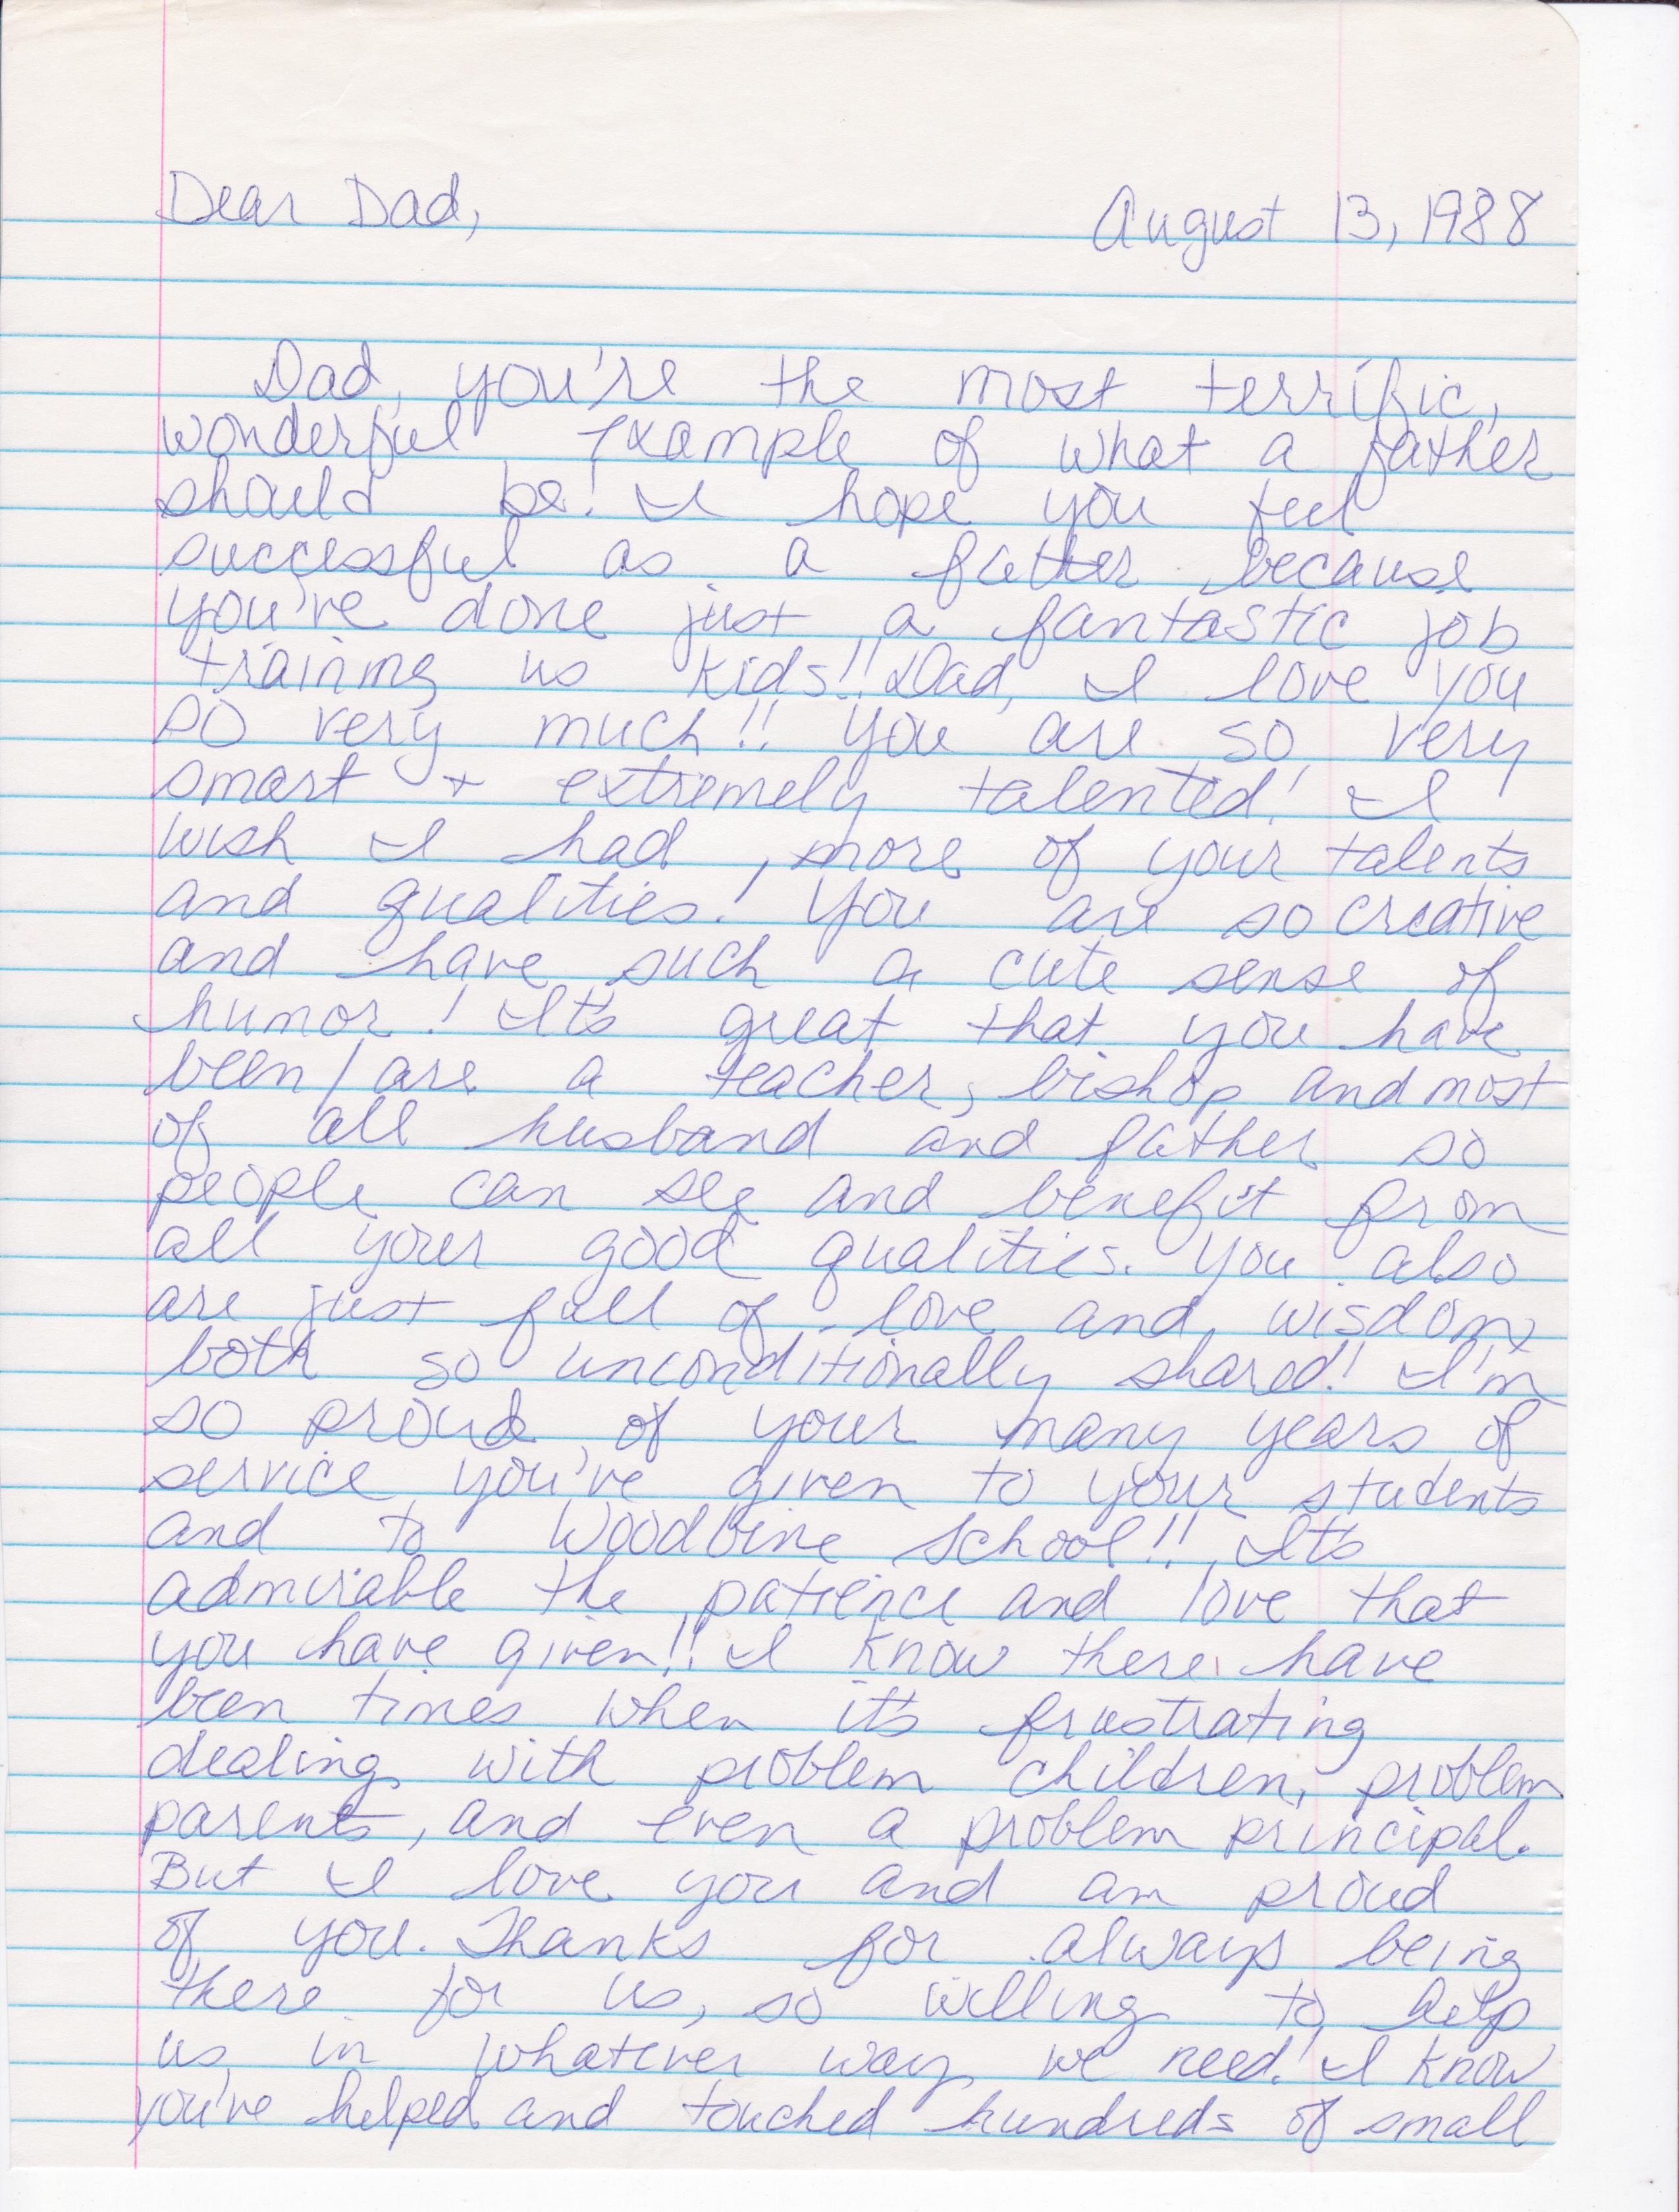 Dear Dad, August 13, 1988
Dad, you're the most terrific,
wonderful example of what a father
should be! I hope you feel
successful as a father because
you've done just a fantastic job
training us kids!! Dad, I love you
so very much!! You are so very
smart + extremely talented! I
wish I had more of your talents
and qualities! You are so creative
and have such a cute sense of
humor! It's great that you have
been/are a teacher, bishop and most
of all husband and father so
people can see and benefit from
all your good qualities. You also
are just full of love and wisdom,
both so unconditionally shared! I'm
so proud of your many years of
service you've given to your students
and to Woodbine School!! It's
admirable the patience and love that
you have given!! I know there have
been times when it's frustrating
dealing with problem children, problem
parents, and even a problem principal.
But I love you and am proud
of you. Thanks for always being
there for us, so willing to help
us in whatever way we need! I know
you've helped and touched hundreds of small